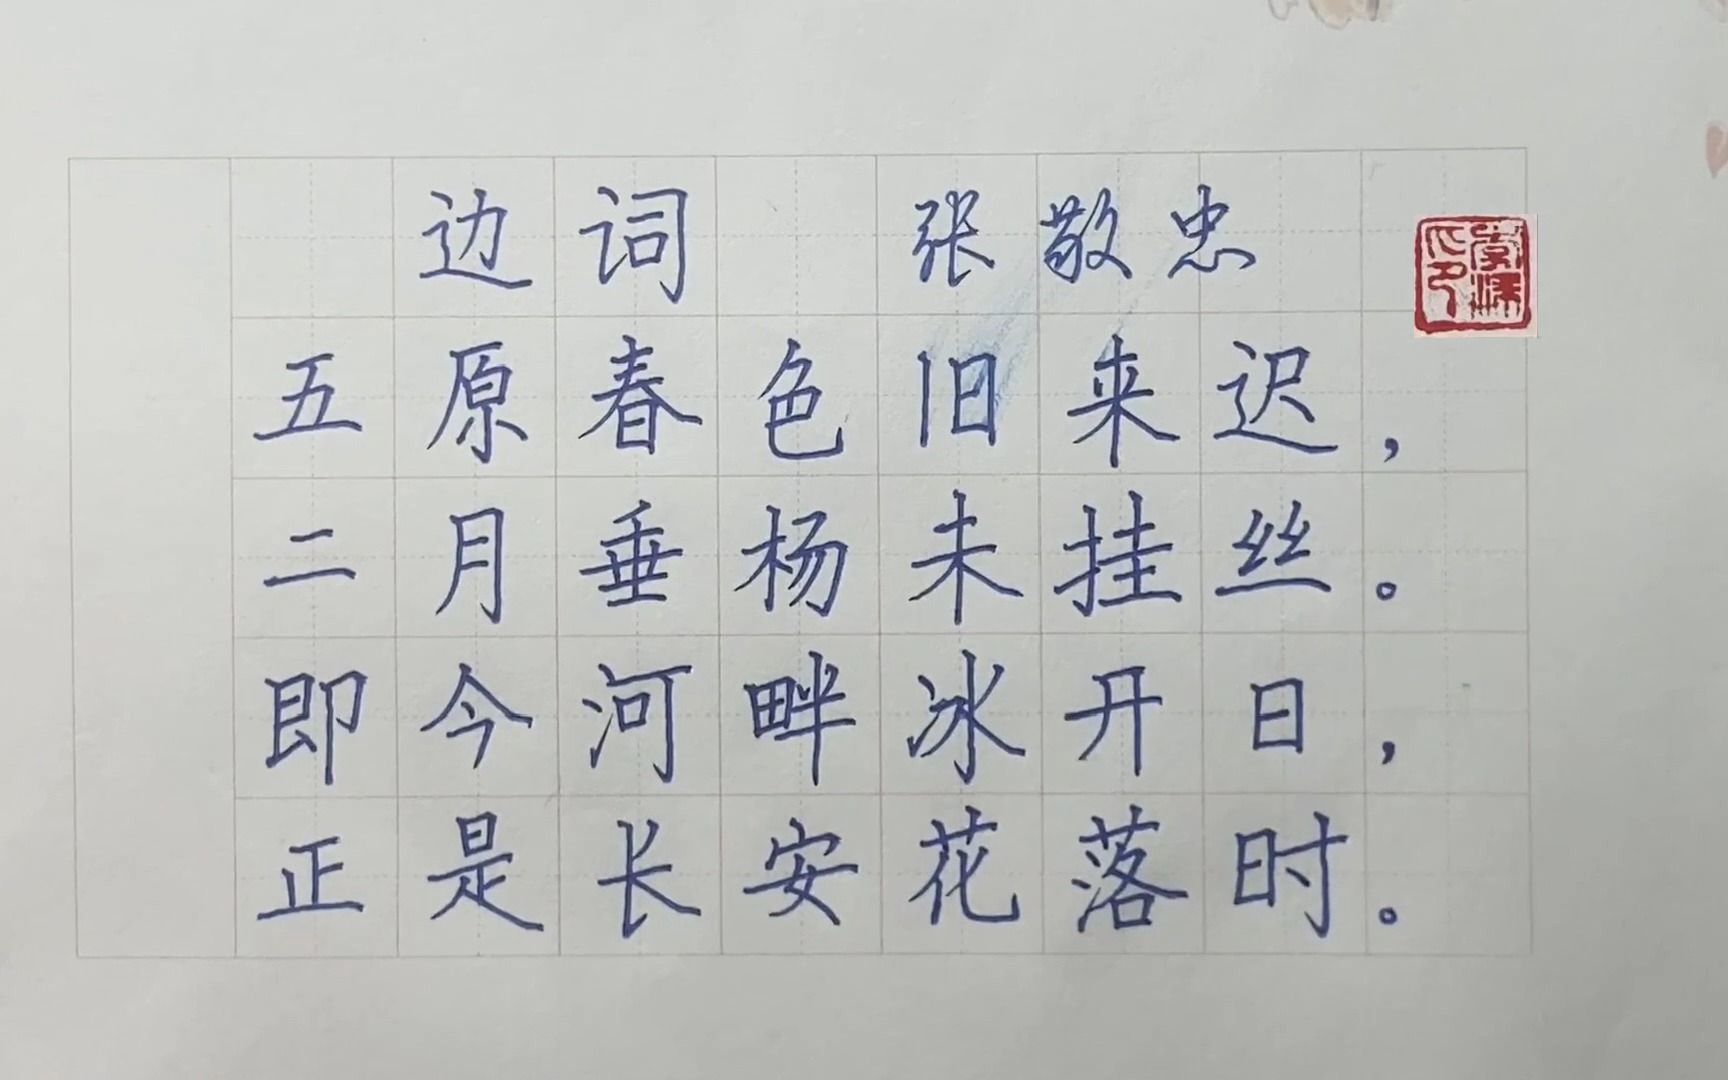 边词 张敬忠
五原春色旧来迟，
二月垂杨未挂丝。
即今河畔冰开日，
正是长安花落时。